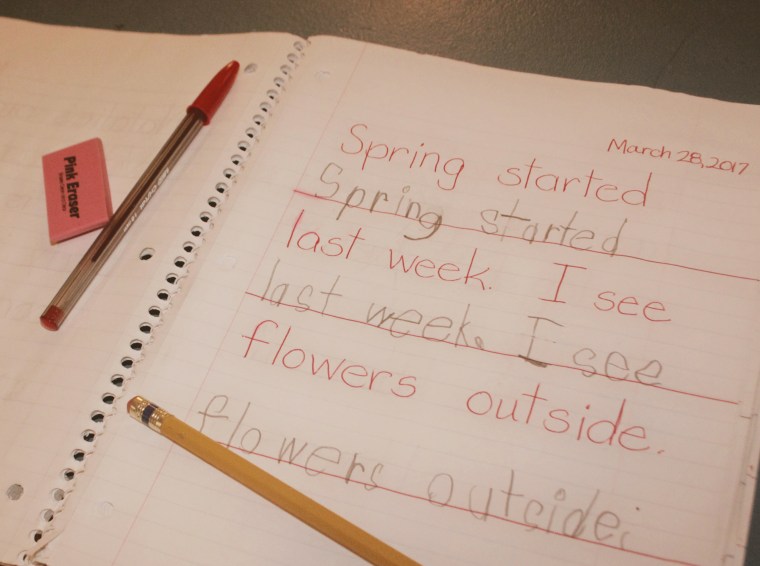 March 28, 2017
Spring started
Spring started
last week. I see
last week. I see
flowers outside.
flowers outside.
Pink Eraser